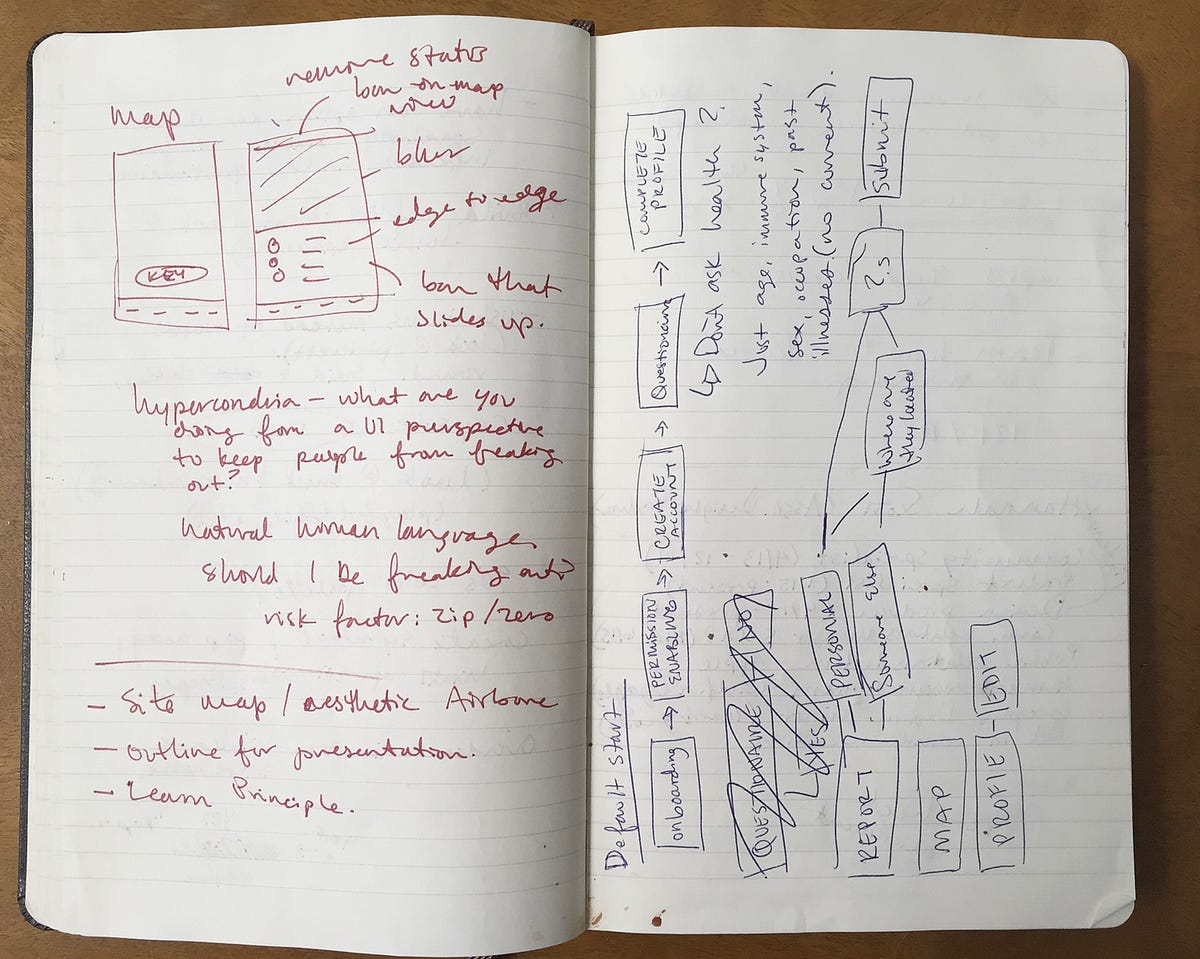 remove status
bar on map
view
map
blur
edge to edge
KEY
bar that
slides up.
hypercondria - what are you
doing from a UI perspective
to keep people from freaking
out?
natural human language
should I be freaking out?
risk factor: zip/zero
- Site map / aesthetic Airborne
- outline for presentation.
- Learn Principle.
Default start
onboarding
PERMISSION
ENABLING
CREATE
ACCOUNT
Questioning
COMPLETE
PROFILE
Don't ask health?
Just age, immune system,
sex, occupation, past
illnesses (no current).
QUESTIONNAIRE
NO
YES
REPORT
PERSONAL
Someone Else
Where are
they located
?s
Submit
MAP
PROFIE
EDIT